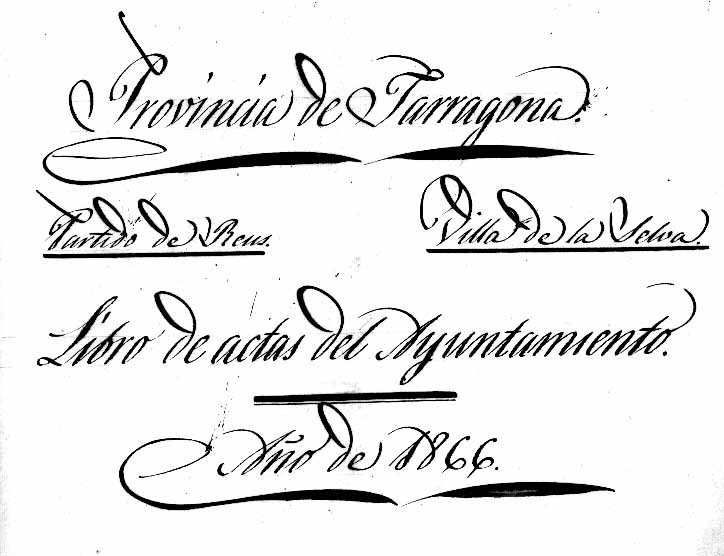 Provincia de Tarragona.
Partido de Reus. Villa de la Selva.
Libro de actas del Ayuntamiento.
Año de 1866.